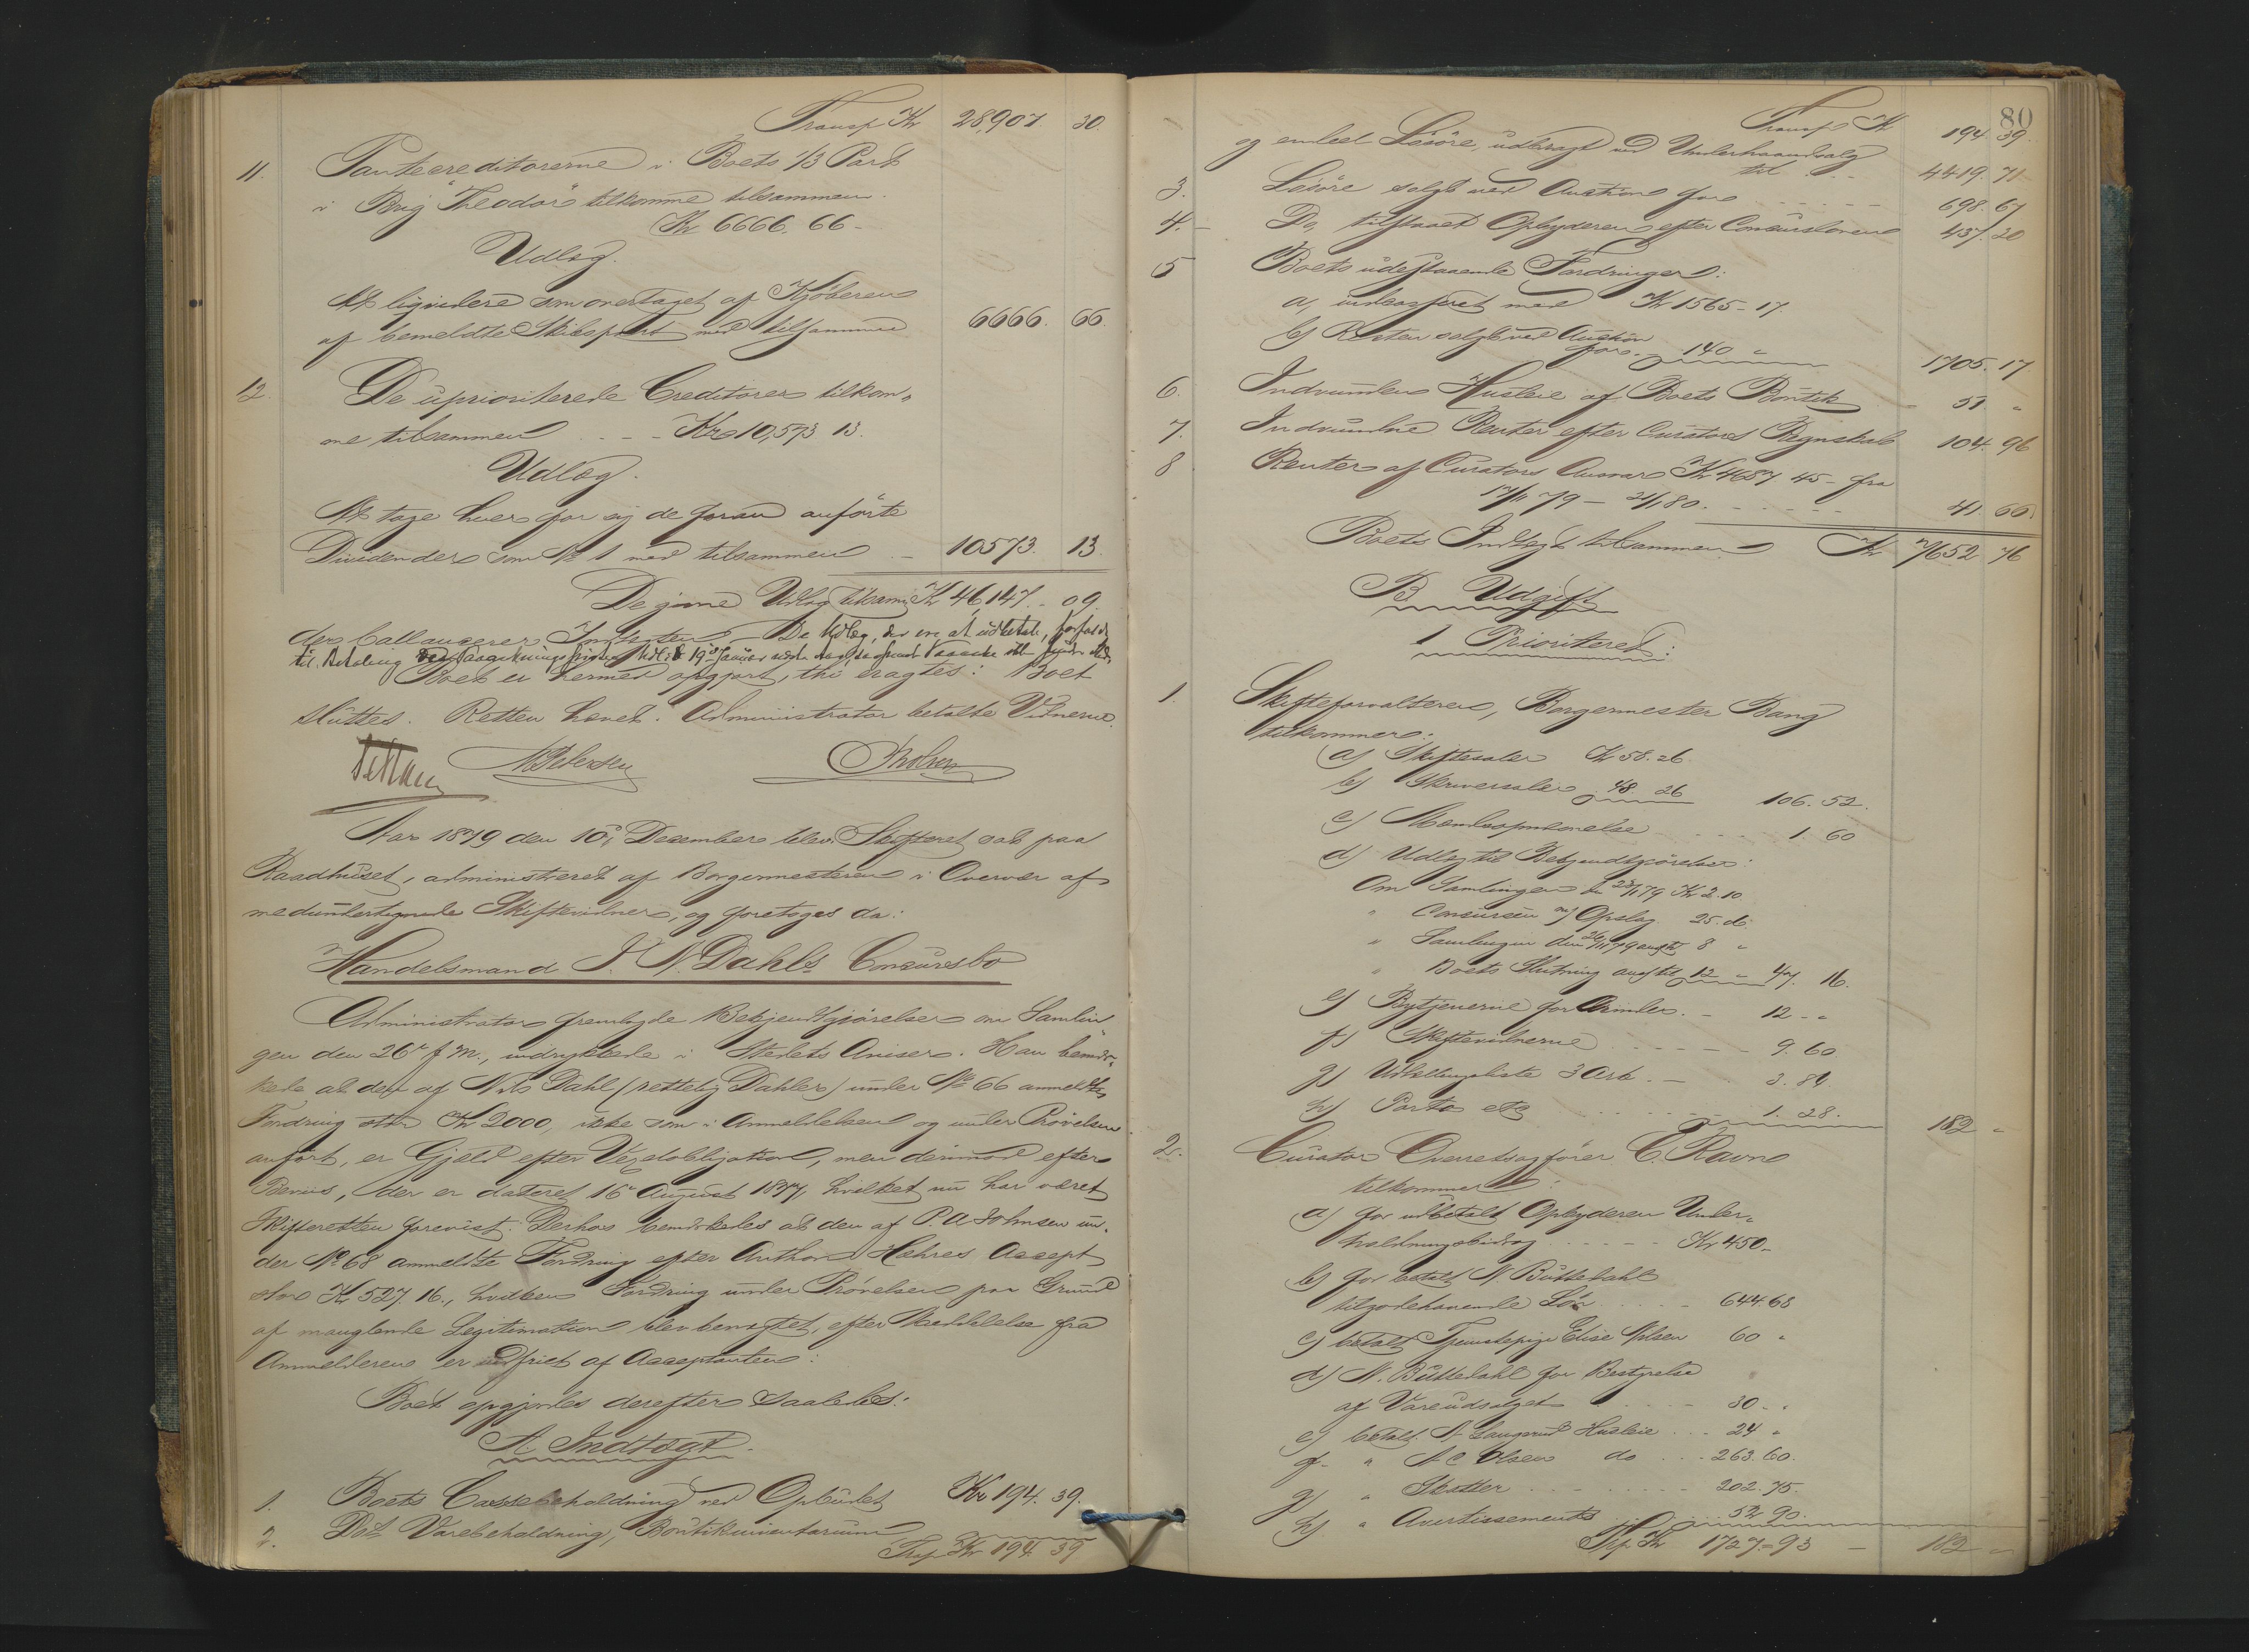 Transp Kr 28,907. 30.
11. Pantecreditorerne i Boets 1/3 Part
i Brig "Theodor" tilkomme tilsammen
Kr 6666. 66 -
Udlæg.
At liqvidere som overtaget af Kjøberen
af bemeldte Skibspart med tilsammen 6666. 66.
12. De uprioriterede Creditorer tilkom-
me tilsammen - - - Kr 10,573 13.
Udlæg.
At tage hver for sig de foran anførte
Dividender som No 1 med tilsammen - 10573. 13.
De gjorte Udlæg tilsam: Kr 46,147. - 09.
der ballancerer Indtægten. De Udlæg, der ere at udbetale, forfalde
til Betaling
Boet er hermed opgjort, thi eragtes: Boet
sluttes. Retten hævet. Administrator betalte Vidnerne.
N Petersen
Aar 1879 den 10de December blev Skifteret sat paa
Raadhuset, administreret af Borgermesteren i Overvær af
medundertegnede Skiftevidner, og foretoges da:
Handelsmand J. N. Dahls Concursbo
Administrator fremlagde Bekjendtgjørelser om Samlin-
gen den 26de f. M., indrykkede i Stedets Aviser. Han bemær-
kede at den af Nils Dahl (rettelig Dahler) under No 66 anmeldte
Fordring stor Kr 2000, ikke som i Anmeldelsen og under Prøvelsen
anført, er Gjæld efter Vexelobligation, men derimod efter
Beviis, der er dateret 16de August 1877, hvilket nu har været
Skifteretten forevist. Derhos bemærkedes at den af P. A Johnsen un-
der No 68 anmeldte Fordring efter Anthon Hæhres Accept
stor Kr 527. 16., hvilken Fordring under Prøvelsen paa Grund
af manglende Legitimation blev benegtet, efter Meddelelse fra
Anmelderen er indfriet af Acceptanten:
Boet opgjordes derefter saaledes:
A. Indtægt.
1. Boets Cassebeholdning ved Opbudet Kr 194. 39.
2. Dets Varebeholdning, Boutikinventarium
Trsp Kr 194 39
80
Transp Kr 194 39.
og endeel Løsøre, udbragt ved Underhaandsalg
til - - - 4419. 71
3. Løsøre solgt ved Auction for - - - - - 698. 67
4. - Do, tilstaaet Opbyderen efter Concursloven 437. 20
5 Boets udestaaende Fordringer:
a, indcasseret med Kr 1565 - 17.
b) Resten solgt ved Auction
for - 140 " 1705. 17
6. Indvunden Husleie af Boets Boutik - 51. "
7. Indvundne Renter efter Curators Regnskab 104. 96
8 Renter af Curators Ansvar Kr 4687 45 - fra
- - - - - 41. 66.
Boets Indtægt tilsammen Kr 7652 76
B Udgift
1 Prioriteret:
1. Skifteforvalteren, Borgermester Bang
tilkommer:
a) Skiftesaler Kr 58. 26.
b) Skriversaler 48. 26 106. 52.
c) - - - - 1. 60
d) Udlæg til Bekjendtgjørelser:
Om Samlingen Kr 2. 10
" Concursen m/ Opslag 25. 06
" Samlingen den 8 "
" Boets Slutning 12 " 47. 16.
e) Bytjenerne for - 12 - "
f) Skiftevidnerne - - - - - 9. 60
g) Udlodningsliste 3 Ark. - 3. 84
h) Porto etc - - - - 1. 28. 182 "
2. Curator Overretssagfører C. Ravn
tilkommer:
a) for udbetalt Opbyderen Under-
holdningsbidrag - - - - - Kr 450 -
b) for betalt N Buttedahl
tilgodehavende Løn - - - - 644.68
c) betalt Tjenestepige Elise Nilsen 60 "
d) N. Buttedahl for Bestyrelse
af Vareudsalget - - - 30 - "
e) betalt N Haugerud Husleie - - 24 "
f - " A C Olsen do - - - 263.60.
g) " Skatter - - - - - - - 202. 75.
h) " Avertissements - - - 52 90.
Trsp Kr 1727 = 93 - 182 "